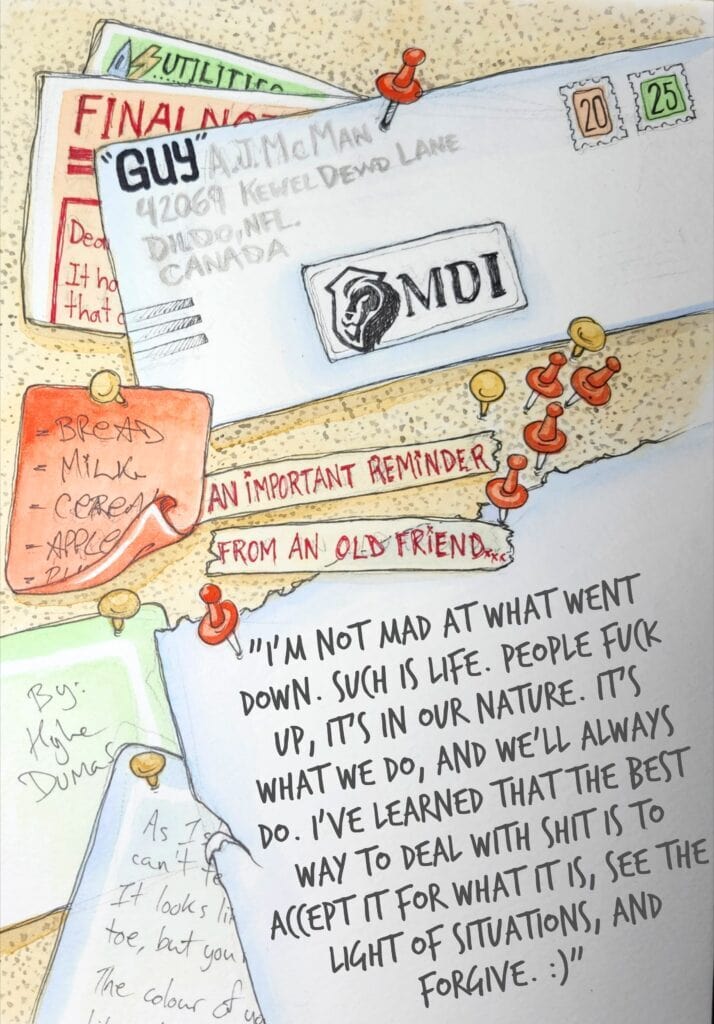 UTILITIE
FINAL NOT
Dea
It ha
that
"GUY" A.J. McMAN
42069 KEWEL DEWD LANE
DILDO, NFL.
CANADA
20
25
MDI
- BREAD
- MILK
- CEREAL
- APPLE
AN IMPORTANT REMINDER
FROM AN OLD FRIEND...
By:
Hyke
Dumas
As I
can't te
It looks li
toe, but you
The colour of yo
"I'M NOT MAD AT WHAT WENT
DOWN. SUCH IS LIFE. PEOPLE FUCK
UP, IT'S IN OUR NATURE. IT'S
WHAT WE DO, AND WE'LL ALWAYS
DO. I'VE LEARNED THAT THE BEST
WAY TO DEAL WITH SHIT IS TO
ACCEPT IT FOR WHAT IT IS, SEE THE
LIGHT OF SITUATIONS, AND
FORGIVE. :)"